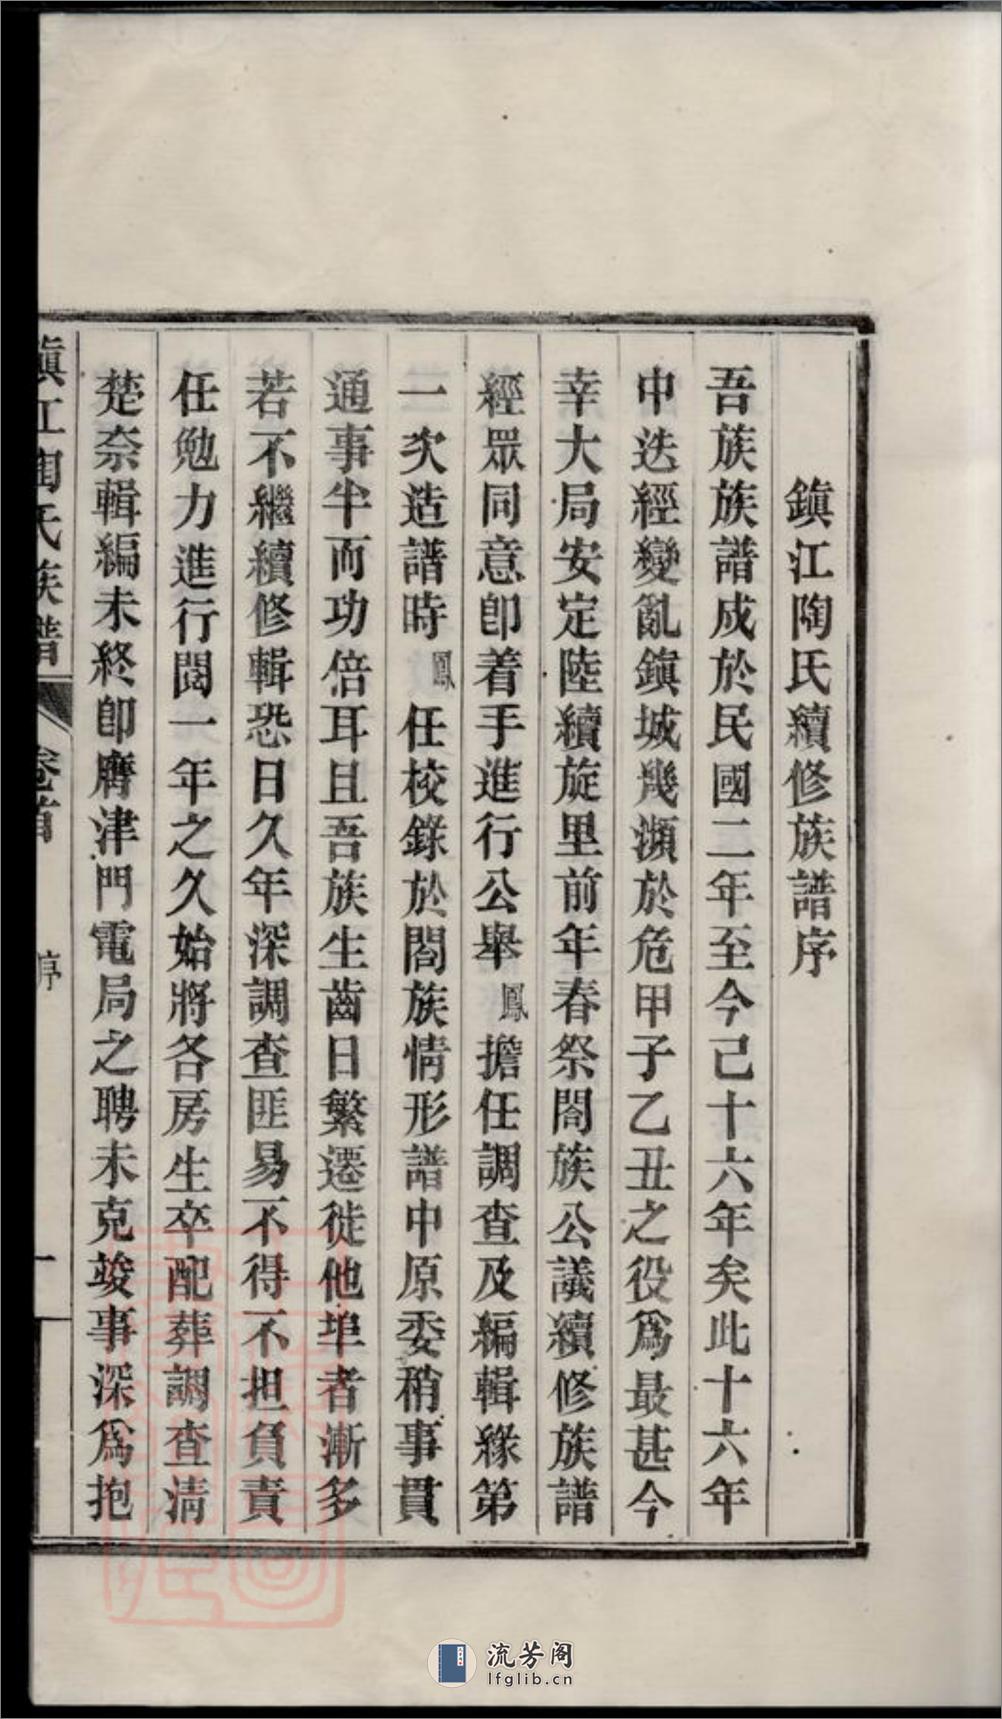 鎮江陶氏續修族譜序
吾族族譜成於民國二年至今已十六年矣此十六年
中迭經變亂鎮城幾瀕於危甲子乙丑之役爲最甚今
幸大局安定陸續旋里前年春祭閤族公議續修族譜
經眾同意卽着手進行公舉鳳擔任調查及編輯緣第
一次造譜時鳳任校錄於閤族情形譜中原委稍事貫
通事半而功倍耳且吾族生齒日繁遷徙他埠者漸多
若不繼續修輯恐日久年深調查匪易不得不担負責
任勉力進行閱一年之久始將各房生卒配葬調查淸
楚奈輯編未終卽膺津門電局之聘未克竣事深爲抱
鎮江陶氏族譜 卷首 序 一
流芳阁
lfglib.cn